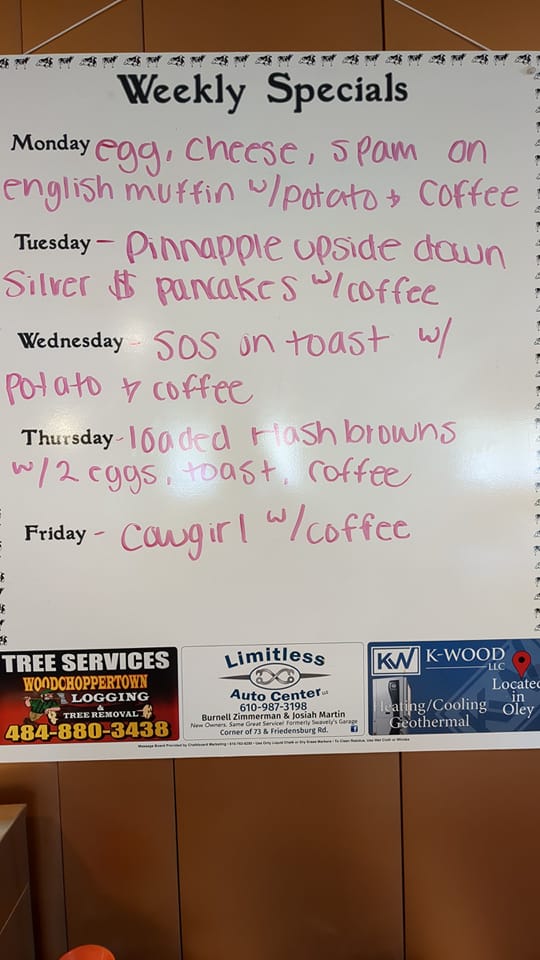 Weekly Specials
Monday egg, cheese, spam on
english muffin w/potato + coffee
Tuesday - Pinnapple upside down
Silver $ pancakes w/coffee
Wednesday - SOS on toast w/
potato + coffee
Thursday - loaded Hash browns
w/2 eggs, toast, coffee
Friday - Cowgirl w/coffee
TREE SERVICES
WOODCHOPPERTOWN
LOGGING
&
TREE REMOVAL
484-880-3438
Limitless
Auto Center LLC
610-987-3198
Burnell Zimmerman & Josiah Martin
New Owners. Same Great Service! Formerly Swavely's Garage
Corner of 73 & Friedensburg Rd.
KW K-WOOD
LLC
Located
in
Oley
Heating/Cooling
Geothermal
Message Board Provided by Chalkboard Marketing • 610-763-6280 • Use Only Liquid Chalk or Dry Erase Markers • To Clean Residue, Use Wet Cloth or Windex